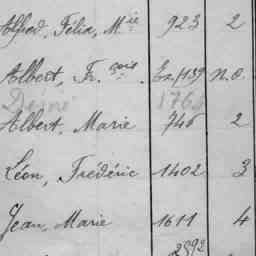 Alfred, Félix, M.ie 923 2
Albert, Fr.çois En/139 n.o.
Désiré 1763
Albert, Marie 746 2
Léon, Frédéric 1402 3
Jean, Marie 1611 4
2592